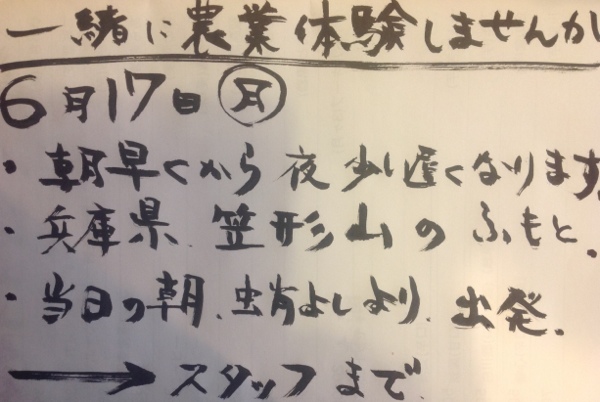 一緒に農業体験しませんか
6月17日(月)
・朝早くから夜少し遅くなります
・兵庫県、笠形山のふもと.
・当日の朝、虫肖よしより、出発.
→スタッフまで